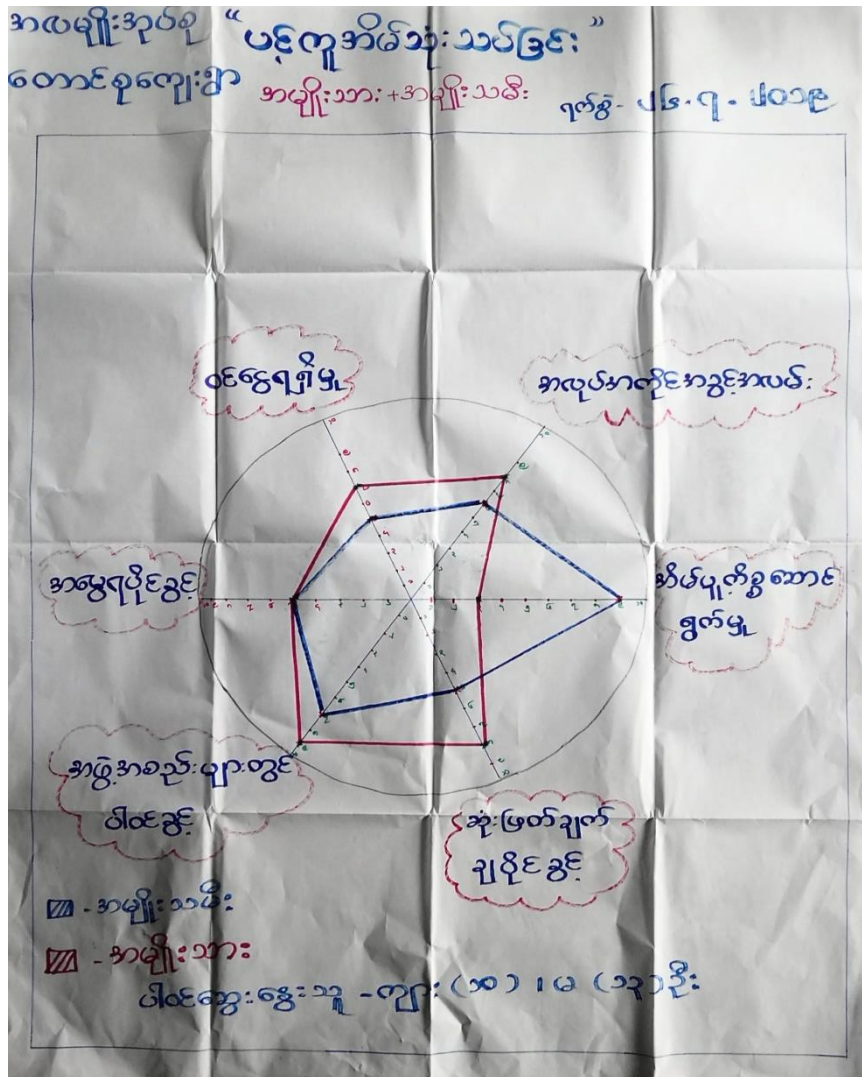 အလမျိုးအုပ်စု
"ပင့်ကူအိမ်သုံးသပ်ခြင်း"
တောင်စုကျေးရွာ
အမျိုးသား+အမျိုးသမီး
ရက်စွဲ- ၂၆.၇.၂၀၁၉
ဝင်ငွေရရှိမှု
အလုပ်အကိုင်အခွင့်အလမ်း
အမွေရပိုင်ခွင့်
အိမ်မှုကိစ္စဆောင်
ရွက်မှု
အဖွဲ့အစည်းများတွင်
ပါဝင်ခွင့်
ဆုံးဖြတ်ချက်
ချပိုင်ခွင့်
- အမျိုးသမီး
- အမျိုးသား
ပါဝင်ဆွေးနွေးသူ - ကျား (၁၀) ၊ မ (၁၃) ဦး